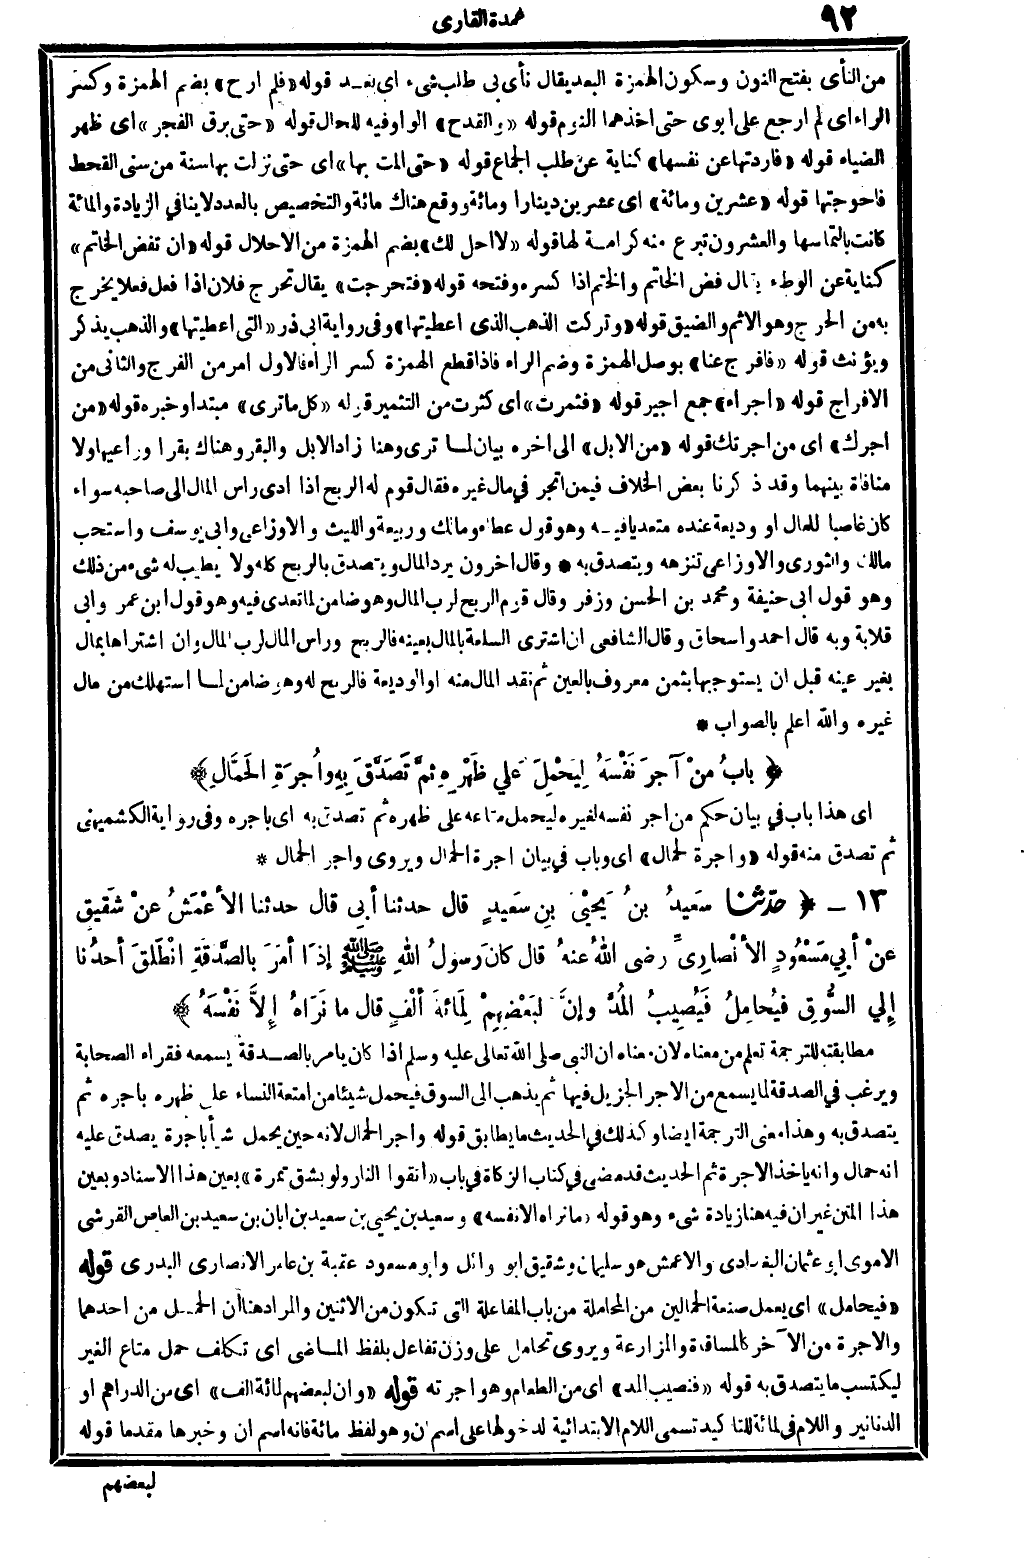 ٩٢
عمدة القارى
من النأى بفتح النون وسكون الهمزة البعد يقال نأى بى طلب شىء اى بعد قوله «فلم ارح» بضم الهمزة وكسر
الراء اى لم ارجع على ابوى حتى اخذهما النوم قوله «والقدح» الواو فيه للحال قوله «حتى برق الفجر» اى ظهر
الضياء قوله «فاردتها عن نفسها» كناية عن طلب الجماع قوله «حتى المت بها» اى حتى نزلت بها سنة من سنى القحط
فاحوجتها قوله «عشرين ومائة» اى عشرين دينارا ومائة ووقع هناك مائة والتخصيص بالعدد لا ينافي الزيادة والمائة
كانت بالتماسها والعشرون تبرع منه كرامة لها قوله «لا احل لك» بضم الهمزة من الاحلال قوله «ان تفض الخاتم»
كناية عن الوطء يقال فض الخاتم والختم اذا كسره وفتحه قوله «فتحرجت» يقال تحرج فلان اذا فعل فعلا يخرج
به من الحرج وهو الاثم والضيق قوله «وتركت الذهب الذى اعطيتها» وفى رواية ابى ذر «التى اعطيتها» والذهب يذكر
ويؤنث قوله «فافرج عنا» بوصل الهمزة وضم الراء فاذا قطع الهمزة كسر الراء فالاول امر من الفرج والثانى من
الافراج قوله «اجراء» جمع اجير قوله «فثمرت» اى كثرت من التثمير قوله «كل ما ترى» مبتدا وخبره قوله «من
اجرك» اى من اجرتك قوله «من الابل» الى اخره بيان لما ترى وهنا زاد الابل والبقر وهناك بقرا وراعيها ولا
منافاة بينهما وقد ذكرنا بعض الخلاف فيمن اتجر في مال غيره فقال قوم له الربح اذا ادى راس المال الى صاحبه سواء
كان غاصبا للمال او وديعة عنده متعديا فيه وهو قول عطاء ومالك وربيعة والليث والاوزاعى وابى يوسف واستحب
مالك والثورى والاوزاعى تنزهه ويتصدق به * وقال اخرون يرد المال ويتصدق بالربح كله ولا يطيب له شىء من ذلك
وهو قول ابى حنيفة ومحمد بن الحسن وزفر وقال قوم الربح لرب المال وهو ضامن لما تعدى فيه وهو قول ابن عمر وابى
قلابة وبه قال احمد واسحاق وقال الشافعى ان اشترى السلعة بالمال بعينه فالربح وراس المال لرب المال وان اشتراها بمال
بغير عينه قبل ان يستوجبها بثمن معروف بالعين ثم نقد المال منه او الوديعة فالربح له وهو ضامن لما استهلك من مال
غيره والله اعلم بالصواب *
﴿ بابُ منْ آجرَ نَفْسَهُ لِيَحْمِلَ عَلي ظَهْرِهِ ثمَّ تَصَدَّقَ بِهِ واُجرَةِ الحَمَّالِ ﴾
اى هذا باب في بيان حكم من اجر نفسه لغيره ليحمل متاعه على ظهره ثم تصدق به اى باجره وفى رواية الكشميهنى
ثم تصدق منه قوله «واجرة لحمال» اى وباب في بيان اجرة الحمال ويروى واجر الحمال *
١٣ _ ﴿ حدّثنا سَعيدُ بنُ يَحيْىَ بنِ سَعيدٍ قال حدثنا أبي قال حدثنا الأعْمَشُ عنْ شَقيقٍ
عنْ أبي مَسْعُودٍ الأنْصارِىِّ رضى اللهُ عنهُ قال كانَ رسولُ اللهِ ﷺ إذَا أمَرَ بالصَّدَقَةِ انْطَلَقَ أحدُنا
إلي السُّوقِ فيُحامِلُ فَيُصِيبُ المُدَّ وإنَّ لبَعْضِهِمْ لَمِائَةَ ألْفٍ قال ما نَرَاهُ إلاَّ نَفْسَهُ ﴾
مطابقته للترجمة تعلم من معناه لان معناه ان النبى صلى الله تعالى عليه وسلم اذا كان يامر بالصدقة يسمعه فقراء الصحابة
ويرغب في الصدقة لما يسمع من الاجر الجزيل فيها ثم يذهب الى السوق فيحمل شيئا من امتعة النساء على ظهره باجره ثم
يتصدق به وهذا معنى الترجمة ايضا وكذلك في الحديث ما يطابق قوله واجر الحمال لانه حين يحمل شيأ باجرة يصدق عليه
انه حمال وانه ياخذ الاجرة ثم الحديث قد مضى في كتاب الزكاة في باب «اتقوا النار ولو بشق تمرة» بعين هذا الاسناد وبعين
هذا المتن غير ان فيه هنا زيادة شىء وهو قوله «ما نراه الا نفسه» وسعيد بن يحيى بن سعيد بن ابان بن سعيد بن العاص القرشى
الاموى ابو عثمان البغدادى والاعمش هو سليمان وشقيق ابو وائل وابو مسعود عقبة بن عامر الانصارى البدرى قوله
«فيحامل» اى يعمل صنعة الحمالين من المحاملة من باب المفاعلة التى تكون من الاثنين والمراد هنا أن الحمل من احدهما
والاجرة من الآخر كالمساقاة والمزارعة ويروى تحامل على وزن تفاعل بلفظ الماضى اى تكلف حمل متاع الغير
ليكتسب ما يتصدق به قوله «فنصيب المد» اى من الطعام وهو اجرته قوله «وان لبعضهم لمائة الف» اى من الدراهم او
الدنانير واللام في لمائة للتاكيد تسمى اللام الابتدائية لدخولها على اسم ان وهو لفظ مائة فانه اسم ان وخبرها مقدما قوله
لبعضهم